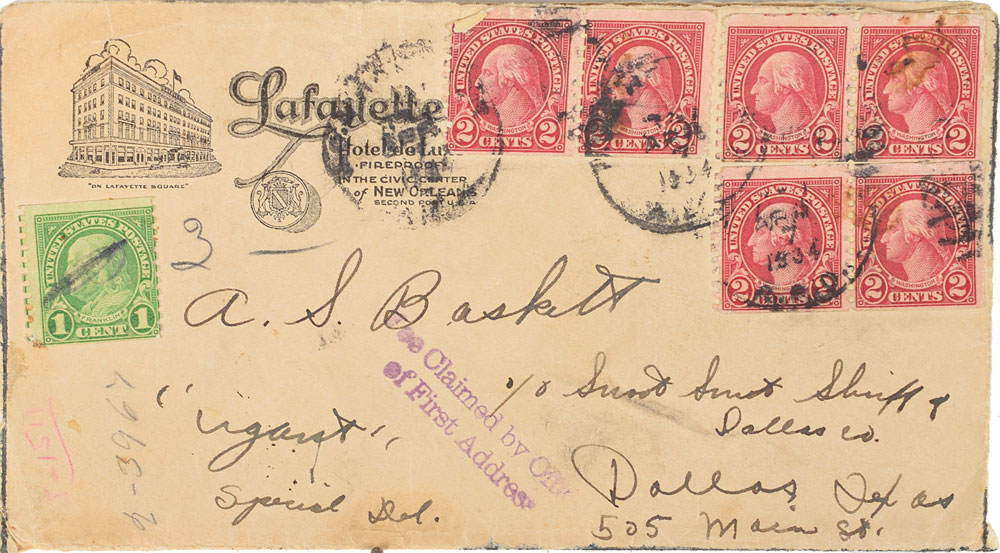 Lafayette
Hotel de Lu
FIREPROOF
IN THE CIVIC CENTER
of NEW ORLEANS
SECOND PORT U.S.A
"ON LAFAYETTE SQUARE"
UNITED STATES POSTAGE
WASHINGTON
2 CENTS 2
UNITED STATES POSTAGE
2 2
UNITED STATES POSTAGE
WASHINGTON
2 CENTS 2
UNITED STATES POSTAGE
WASHINGTON
2 CENTS 2
1934
UNITED STATES POSTAGE
WASHINGTON
2 CENTS 2
1934
UNITED STATES POSTAGE
WASHINGTON
2 CENTS 2
UNITED STATES POSTAGE
FRANKLIN
1 CENT 1
2
A. S. Baskett
Fee Claimed by Office
of First Address
c/o Smoot Smit Shriff &
Dallas co.
"urgant"
Special Del.
Dallas Texas
505 Main St.
2-3967